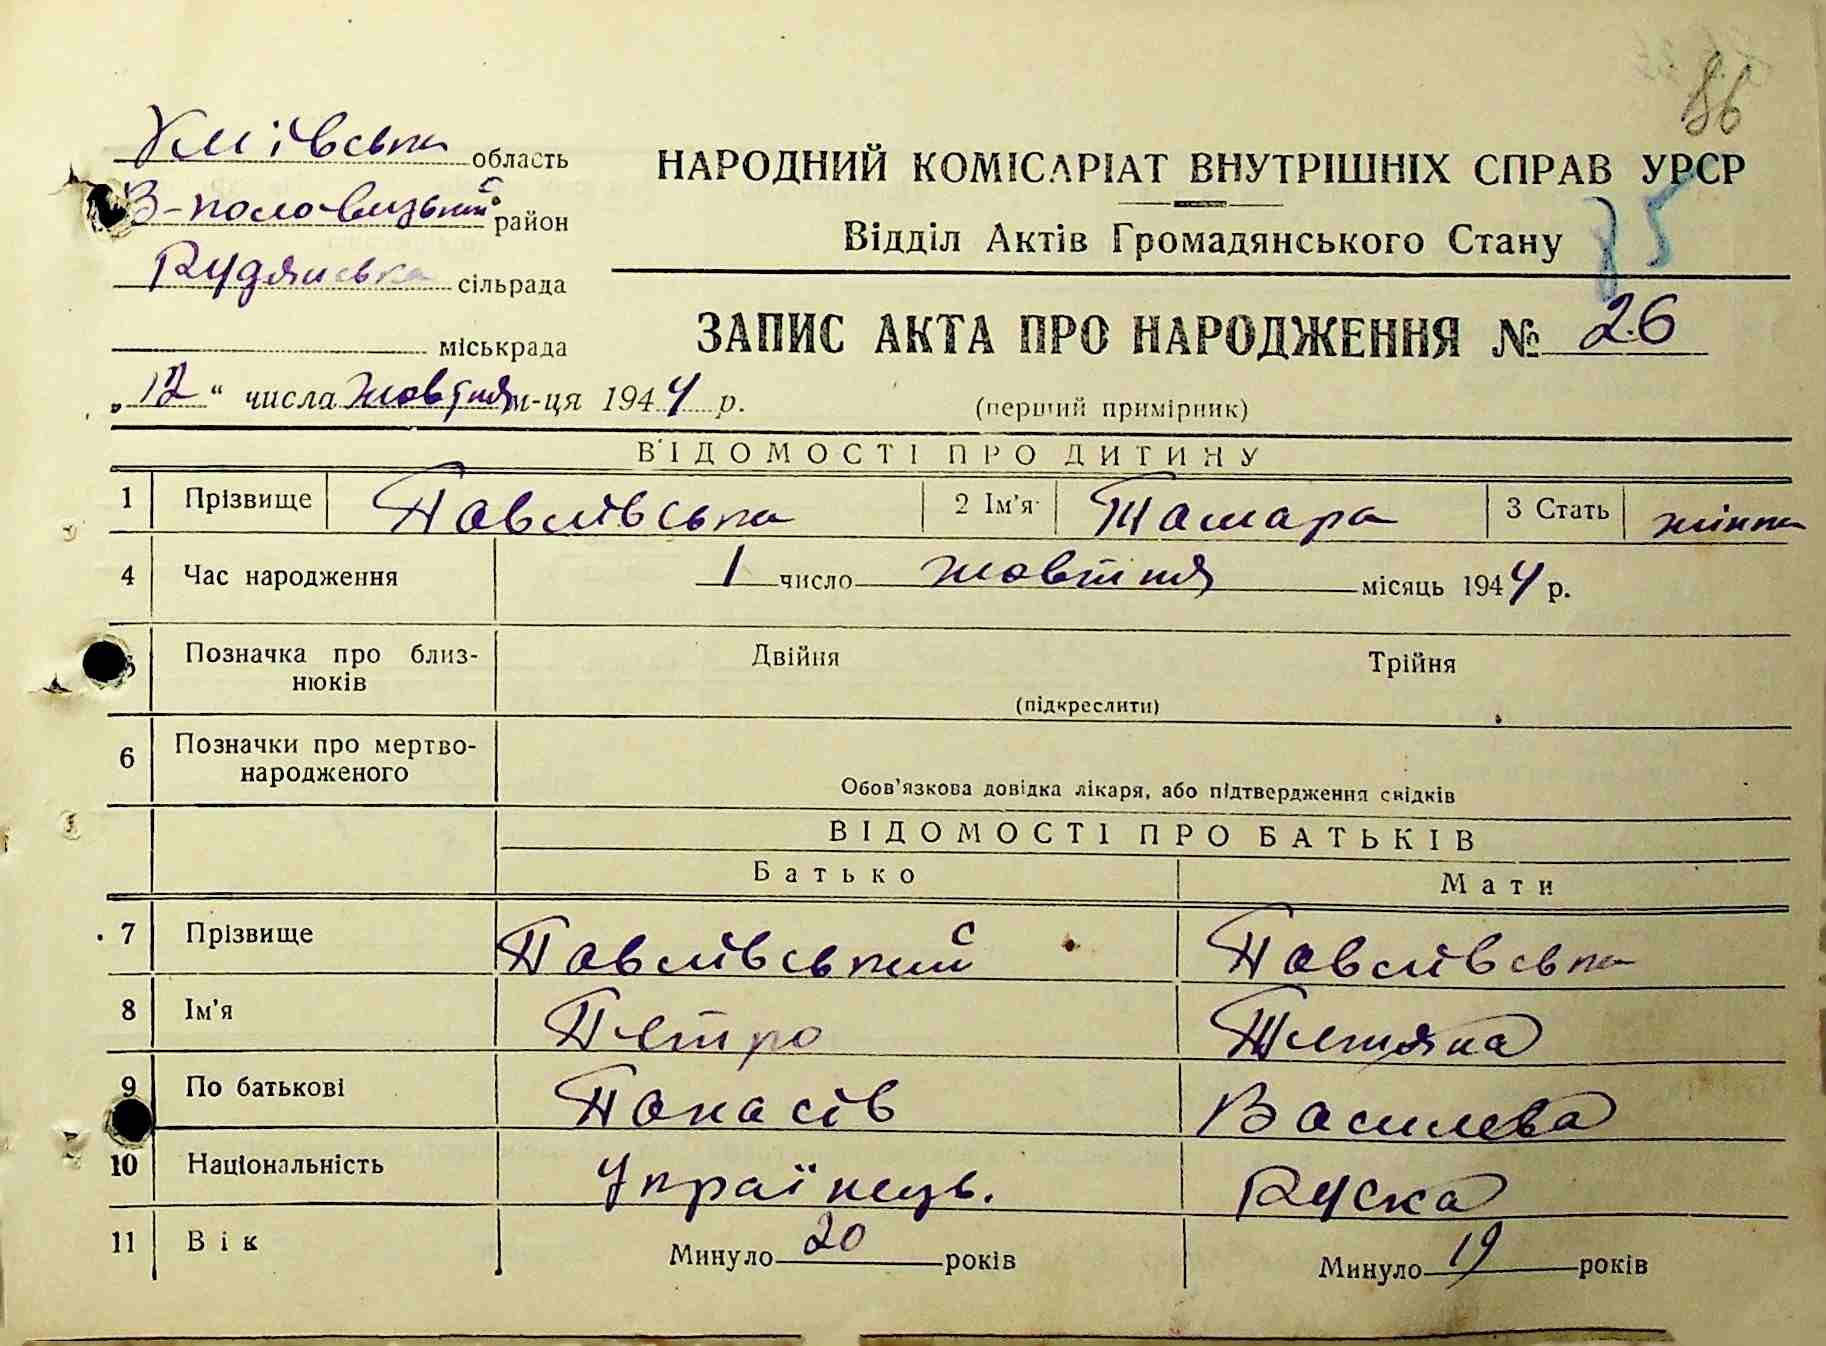 86
Київська область
В-половецький район
Рудянська сільрада
міськрада
„12“ числа жовтня м-ця 1944 р.
НАРОДНИЙ КОМІСАРІАТ ВНУТРІШНІХ СПРАВ УРСР
Відділ Актів Громадянського Стану
ЗАПИС АКТА ПРО НАРОДЖЕННЯ № 26
(перший примірник)
ВІДОМОСТІ ПРО ДИТИНУ
1 Прізвище Павлівська 2 Ім'я Тамара 3 Стать жінка
4 Час народження 1 число жовтня місяць 1944 р.
5 Позначка про близ-нюків Двійня Трійня
(підкреслити)
6 Позначки про мертво-народженого
Обов'язкова довідка лікаря, або підтвердження свідків
ВІДОМОСТІ ПРО БАТЬКІВ
Батько Мати
7 Прізвище Павлівський Павлівська
8 Ім'я Петро Тетяна
9 По батькові Панасів Василева
10 Національність Українець. Руска
11 Вік Минуло 20 років Минуло 19 років